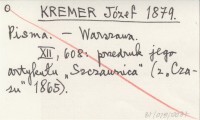 KREMER Józef 1879.
Pisma. — Warszawa.
XII, 608: przedruk jego
artykułu „Szczawnica” (z „Cza-
su” 1865).